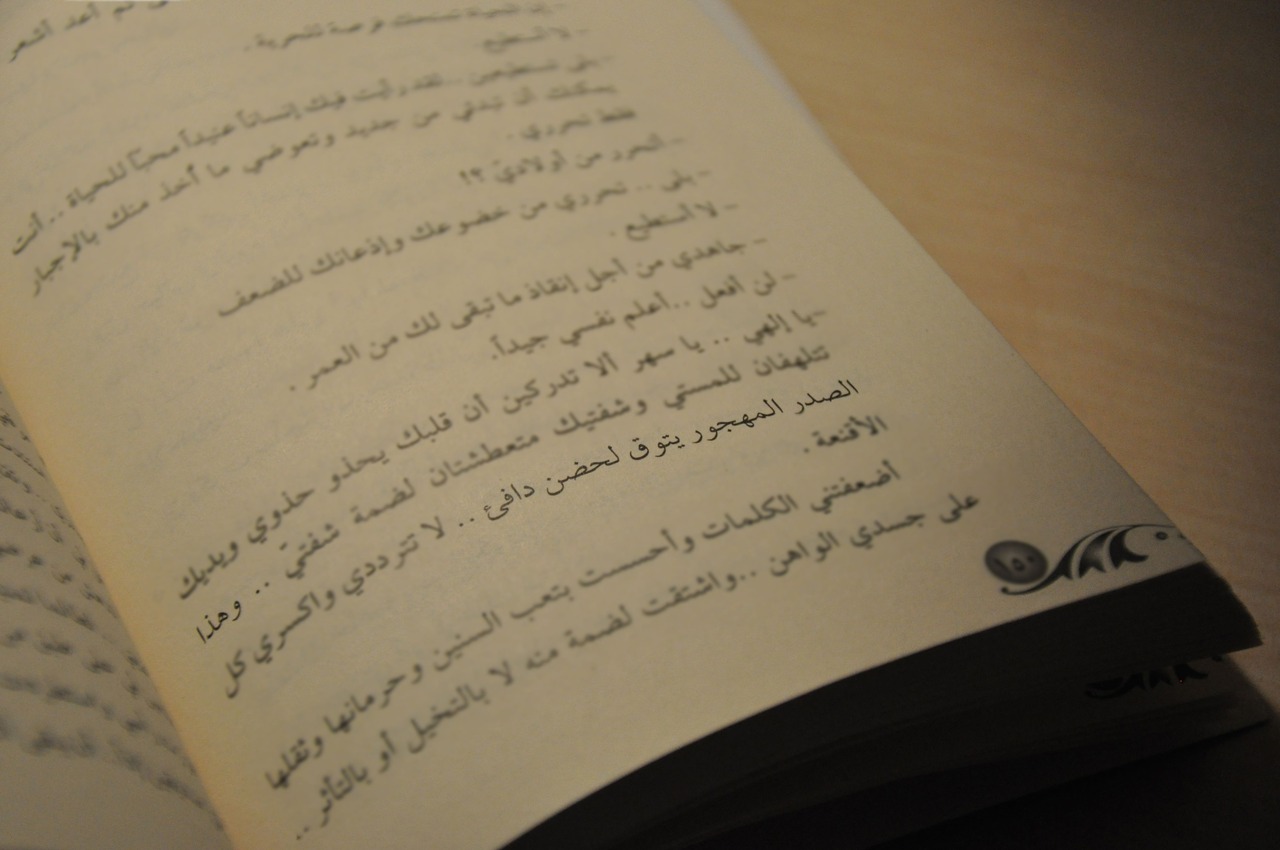 لم أعد أشعر
- لا أستطيع.
- بلى تستطيعين .. لقد رأيت فيك إنساناً عنيداً محبّاً للحياة .. أنت
يمكنك أن تبدئي من جديد وتعوضي ما أخذ منك بالإجبار
فقط تحرري .
- أتحرر من أولاديّ ؟!
- بلى .. تحرري من خضوعك وإذعانك للضعف
- لا أستطيع .
- جاهدي من أجل إنقاذ ما تبقى لك من العمر .
- لن أفعل ..أعلم نفسي جيداً.
-يا إلهي .. يا سهر ألا تدركين أن قلبك يحذو حذوي ويديك
تتلهفان للمستي وشفتيك متعطشتان لضمة شفتيّ .. وهذا
الصدر المهجور يتوق لحضن دافئ .. لا تترددي واكسري كل
الأقنعة .
أضعفتني الكلمات وأحسست بتعب السنين وحرمانها وثقلها
على جسدي الواهن ..واشتقت لضمة منه لا بالتخيل أو بالتأثر ..
١٥٠